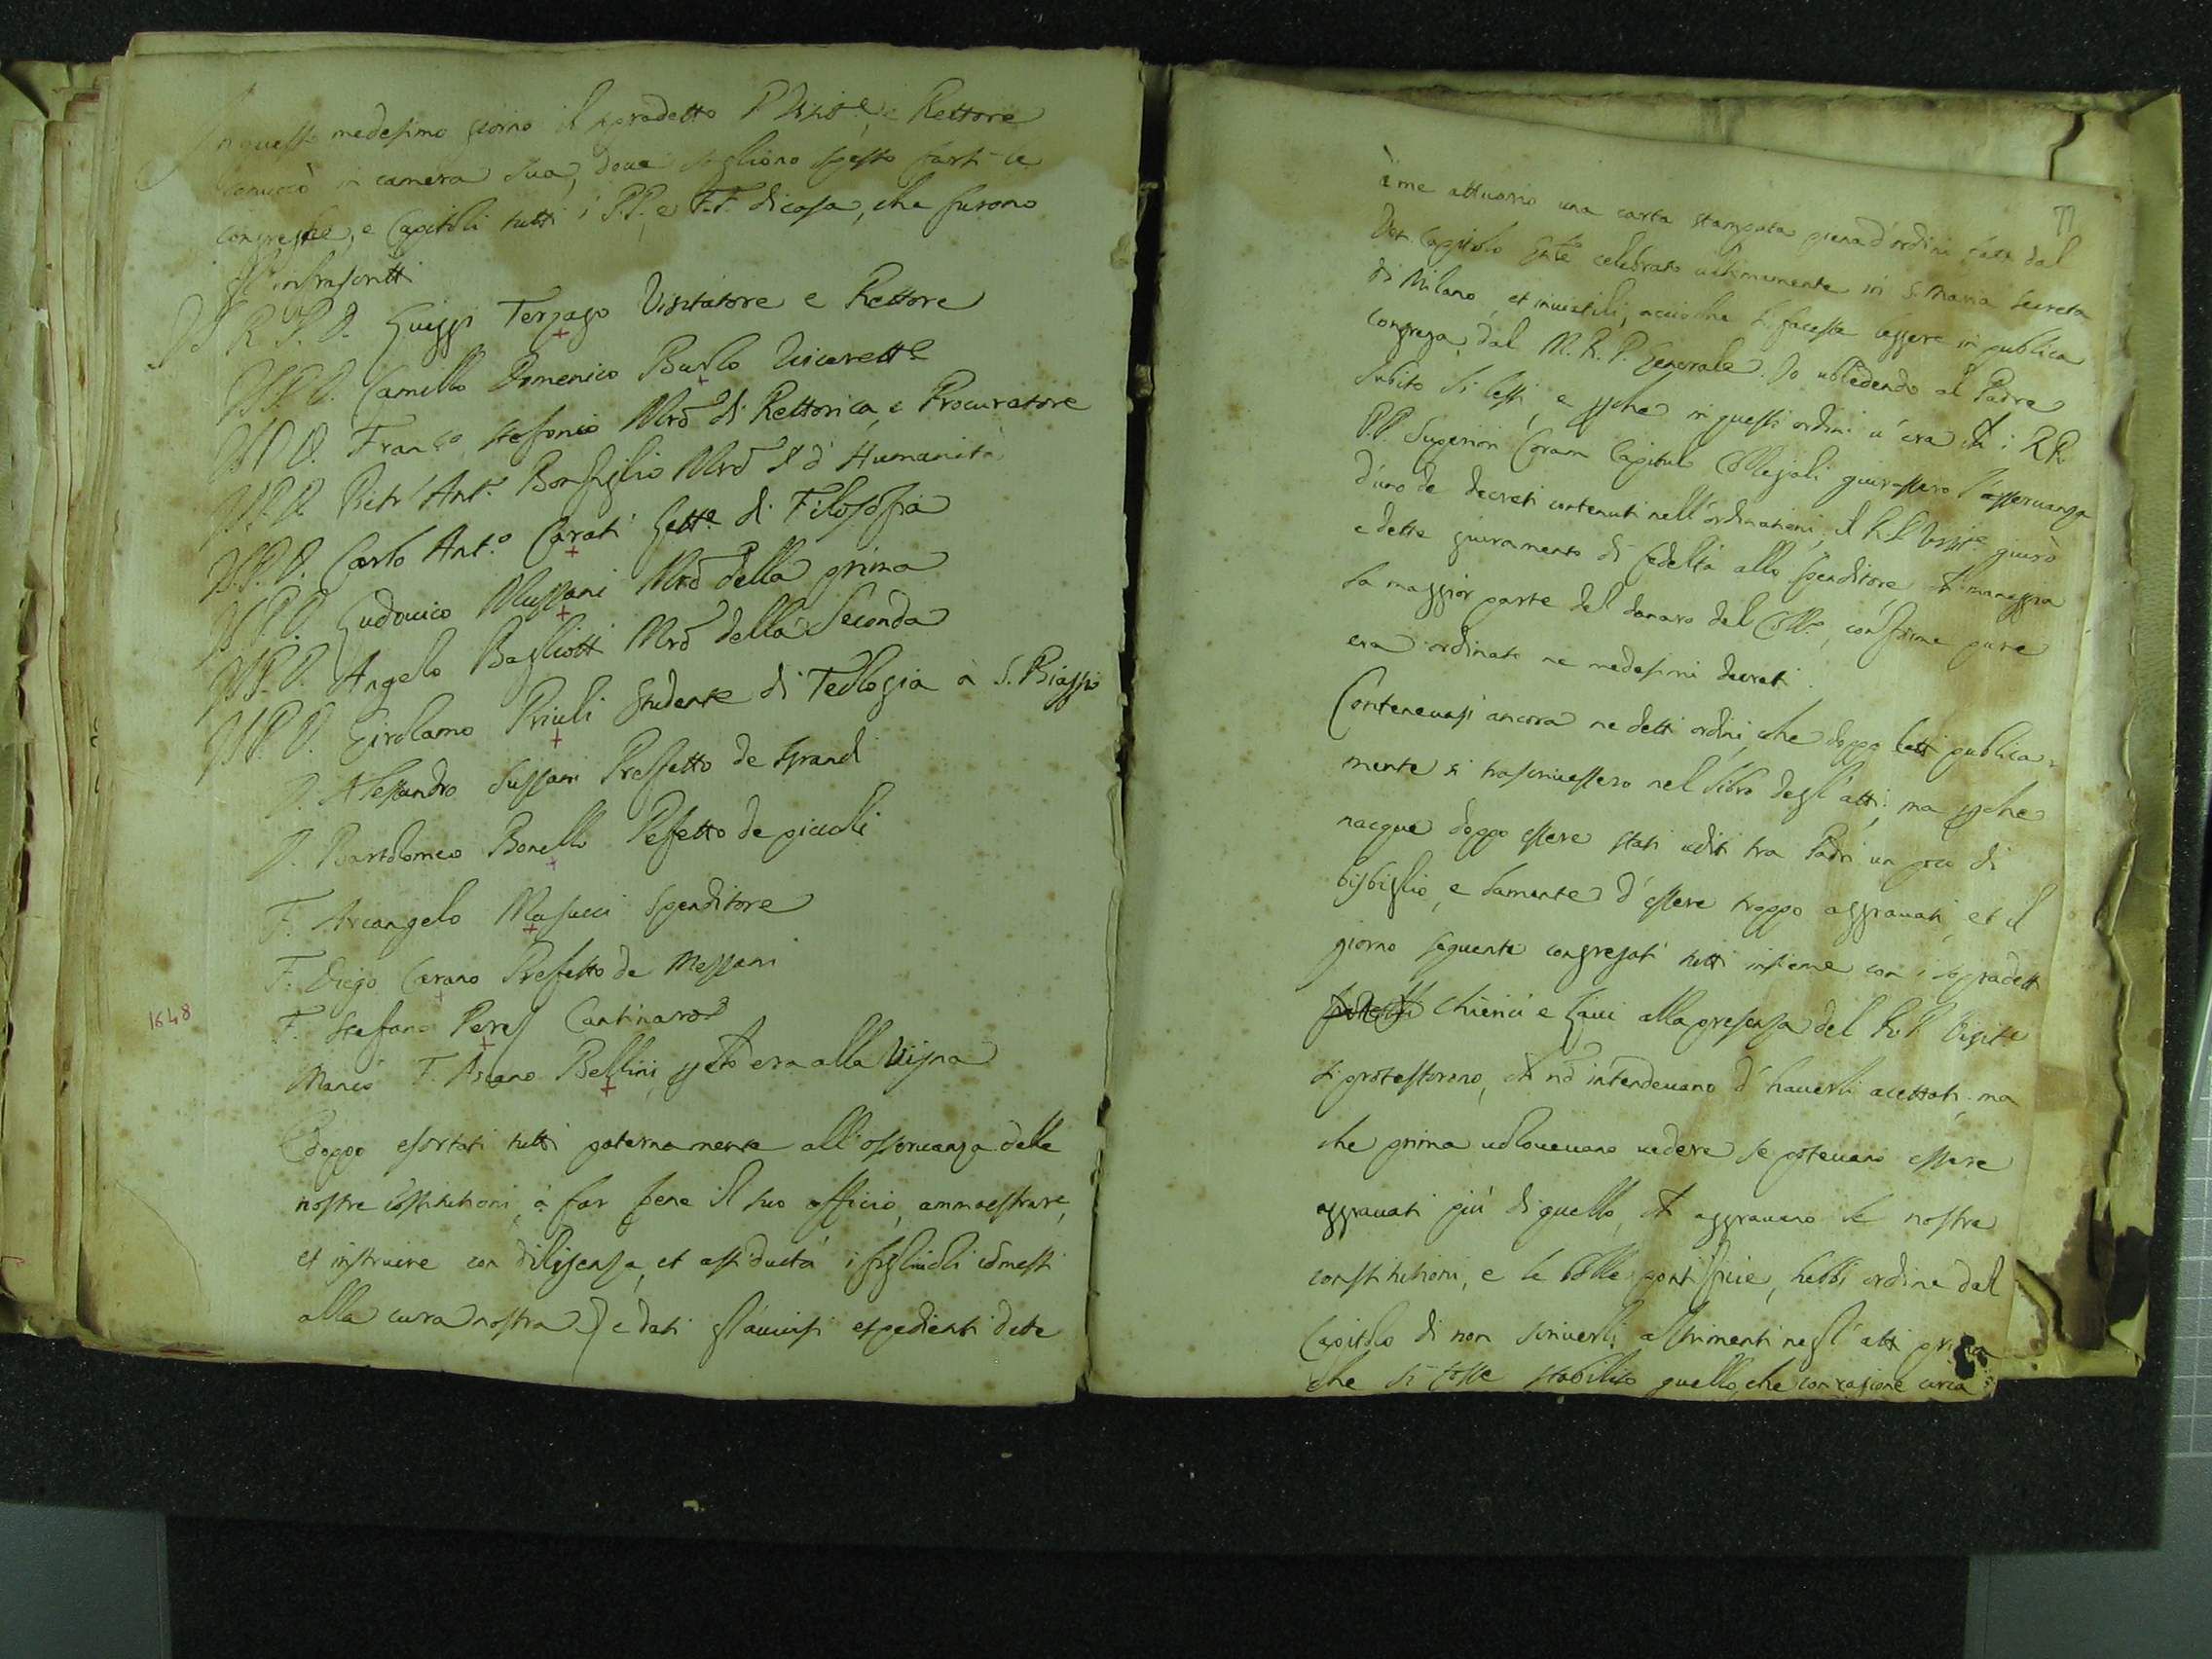 In questo medesimo giorno il sopradetto P. Visit.e, e Rettore
convocò in camera sua, dove sogliono spesso farsi le
congreghe, e Capitoli tutti i P.P. e F.F. di casa, che furono
gl'infrascritti
Il M. R. P. D. Luiggi Terzago Visitatore e Rettore
Il P. D. Camillo Domenico Burlo Vicerett.e
Il P. D. Fran.co Stefonio Mrō di Rettorica, e Procuratore
Il P. D. Pietr'Ant.o Bonfiglio Mrō d'Humanità
Il P. D. Carlo Ant.o Carati Lett.e di Filosofia
Il P. D. Ludovico Mussani Mrō della prima
Il P. D. Angelo Bagliotti Mrō della Seconda
Il P. D. Girolamo Priuli Studente di Teologia à S. Biaggio
D. Alessandro Suppani Preffetto de Grandi
D. Bartolomeo Bonello Pefetto de piccoli
F. Arcangelo Masucci Spenditore
F. Diego Carano Prefetto de Mezzani
1648
F. Stefano Peres Cantinaro
Mancò F. Ascano Bellini, ꝑchè era alla Vigna
E doppo esortati tutti paternamente all'osservanza delle
nostre costitutioni, à far bene il suo officio, ammaestrare,
et instruire con diligenza, et assiduità i figliuoli cōmessi
alla cura nostra, e dati gl'avvisi espedienti dette
77
à me attuario una carta stampata piena d'ordini fatti dal
Ven. Capitolo Gnle celebrato ultimamente in S. Maria Secreta
di Milano, et inviatili, acciò che si facesse leggere in publica
congrega, dal M. R. P. Generale. Io ubbedendo al Padre
subito li lessi, e ꝑche in questi ordini v'era ch'i RR.
P.P. Superiori Coram Capitulo Collegiali giurassero l'osservanza
d'uno de decreti contenuti nell'ordinationi, il R. P. Visit.e giurò
e dette giuramento di fedeltà allo spenditore ch'maneggia
la maggior parte del danaro del Coll.o, conforme pure
era ordinato ne medesimi decreti.
Contenevasi ancora ne detti ordini, che doppo letti publica-
mente si trascrivessero nel libro degl'atti; ma ꝑche
nacque doppo essere stati uditi tra Padri un poco di
bisbiglio, e lamento d'essere troppo aggravati, et il
giorno seguente congregati tutti insieme con i sopradetti
Chierici e Laici alla presenza del R. P. Visit.e
si protestorono, ch' nō intendevano d'haverli accettati, ma
che prima volevano vedere se potevano essere
aggravati più di quello, ch' aggravano le nostre
constitutioni, e le bolle pontificie, hebbi ordine dal
Capitolo di non scriverli altrimenti negl'atti prima
che si fosse stabilito quello, che con ragione circa